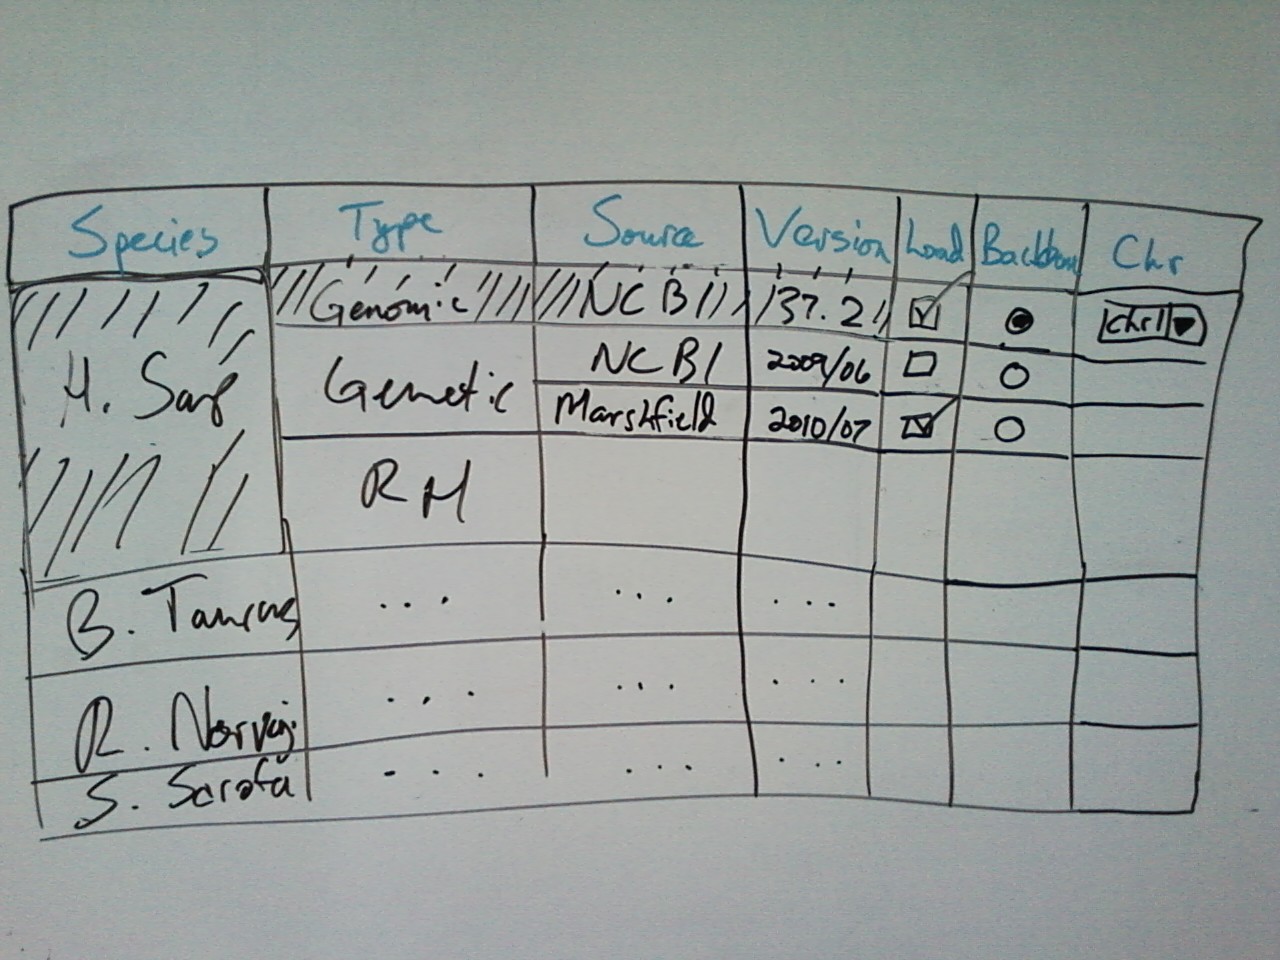 Species Type Source Version Load Backbon Chr
H. Sap Genomic NCBI 37.2 chr1
Genetic NCBI 2009/06
Marshfield 2010/07
RH
B. Taurus ... ... ...
R. Norvig ... ... ...
S. Scrofa ... ... ...